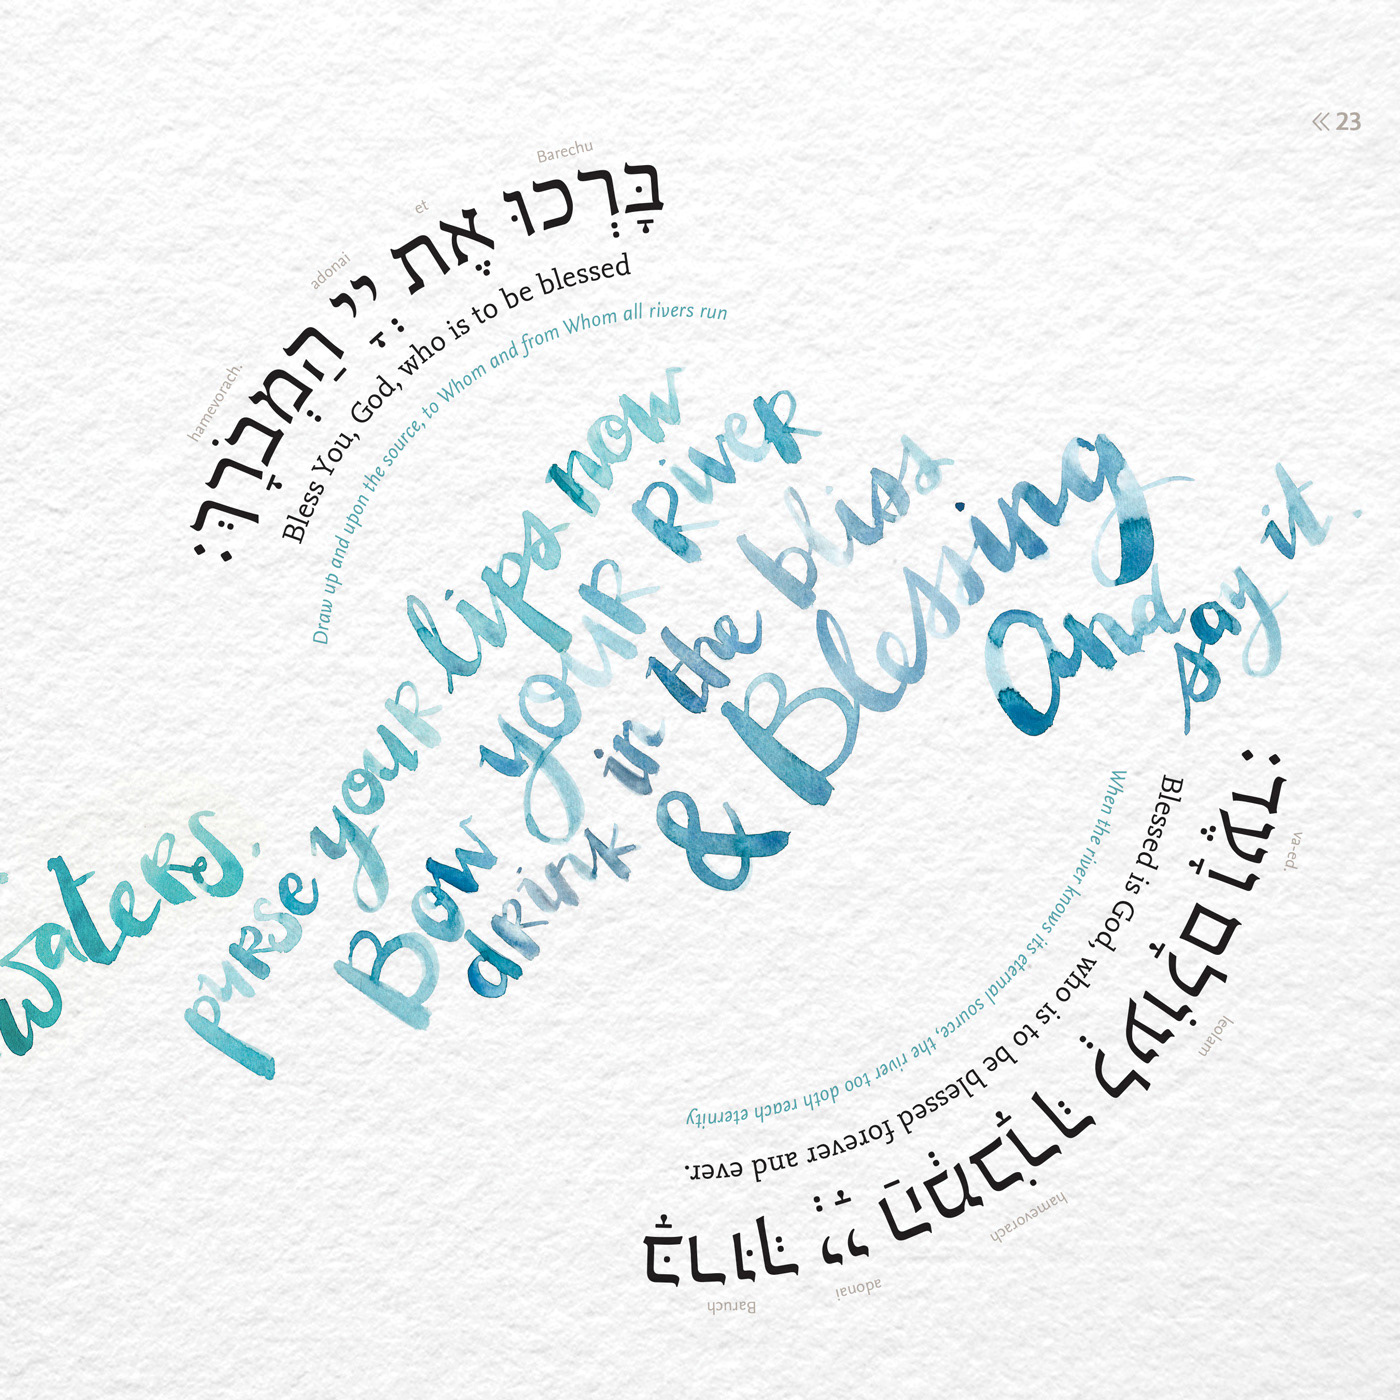 « 23
Barechu et adonai hamevorach.
בָּרְכוּ אֶת יְיָ הַמְבֹרָךְ׃
Bless You, God, who is to be blessed
Draw up and upon the source, to Whom and from Whom all rivers run
waters.
purse your lips now
Bow your River
drink in the bliss
& Blessing
And
say it.
When the river knows its eternal source, the river too doth reach eternity
Blessed is God, who is to be blessed forever and ever.
בָּרוּךְ יְיָ הַמְבֹרָךְ לְעוֹלָם וָעֶד׃
Baruch adonai hamevorach leolam va-ed.